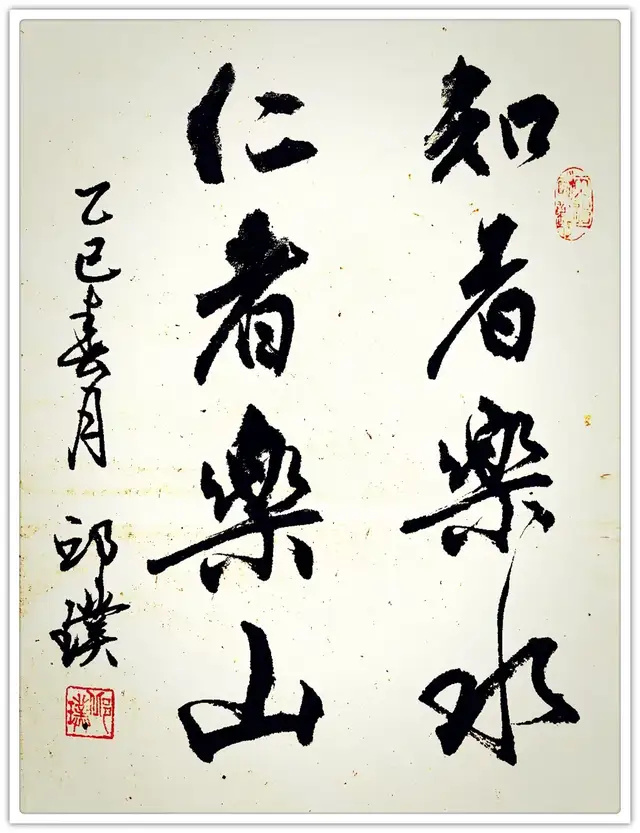 知者樂水
仁者樂山
乙巳春月 邱璞
邱璞